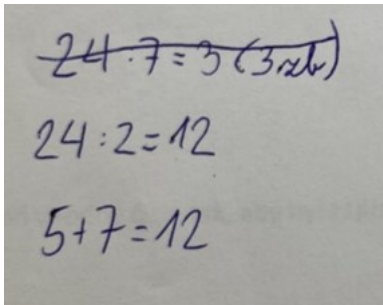 24:7=3(3zb)
24:2=12
5+7=12